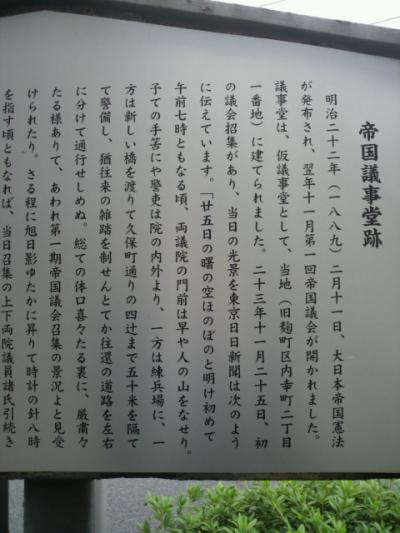 帝国議事堂跡
明治二十二年(一八八九)二月十一日、大日本帝国憲法
が発布され、翌年十一月第一回帝国議会が開かれました。
議事堂は、仮議事堂として、当地(旧麹町区内幸町二丁目
一番地)に建てられました。二十三年十一月二十五日、初
の議会招集があり、当日の光景を東京日日新聞は次のよう
に伝えています。「廿五日の曙の空ほのぼのと明け初めて
午前七時ともなる頃、両議院の門前は早や人の山をなせり。
予ての手筈にや警吏は院の内外より、一方は練兵場に、一
方は新しい橋を渡りて久保町通りの四辻まで五十米を隔て
て警備し、猶往来の雑踏を制せんとてか往還の道路を左右
に分けて通行せしめぬ。総ての体口喜々たる裏に、厳粛々
たる様ありて、あわれ第一期帝国議会召集の景況よと見受
けられたり。さる程に旭日影ゆたかに昇りて時計の針八時
を指す頃ともなれば、当日召集の上下両院議員諸氏引続き